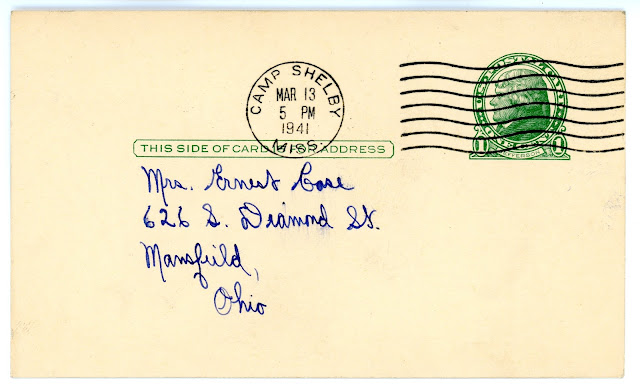 CAMP SHELBY
MAR 13
5 PM
1941
MISS.
THIS SIDE OF CARD IS FOR ADDRESS
1 JEFFERSON 1
Mrs. Ernest Case
626 S. Diamond St.
Mansfield,
Ohio